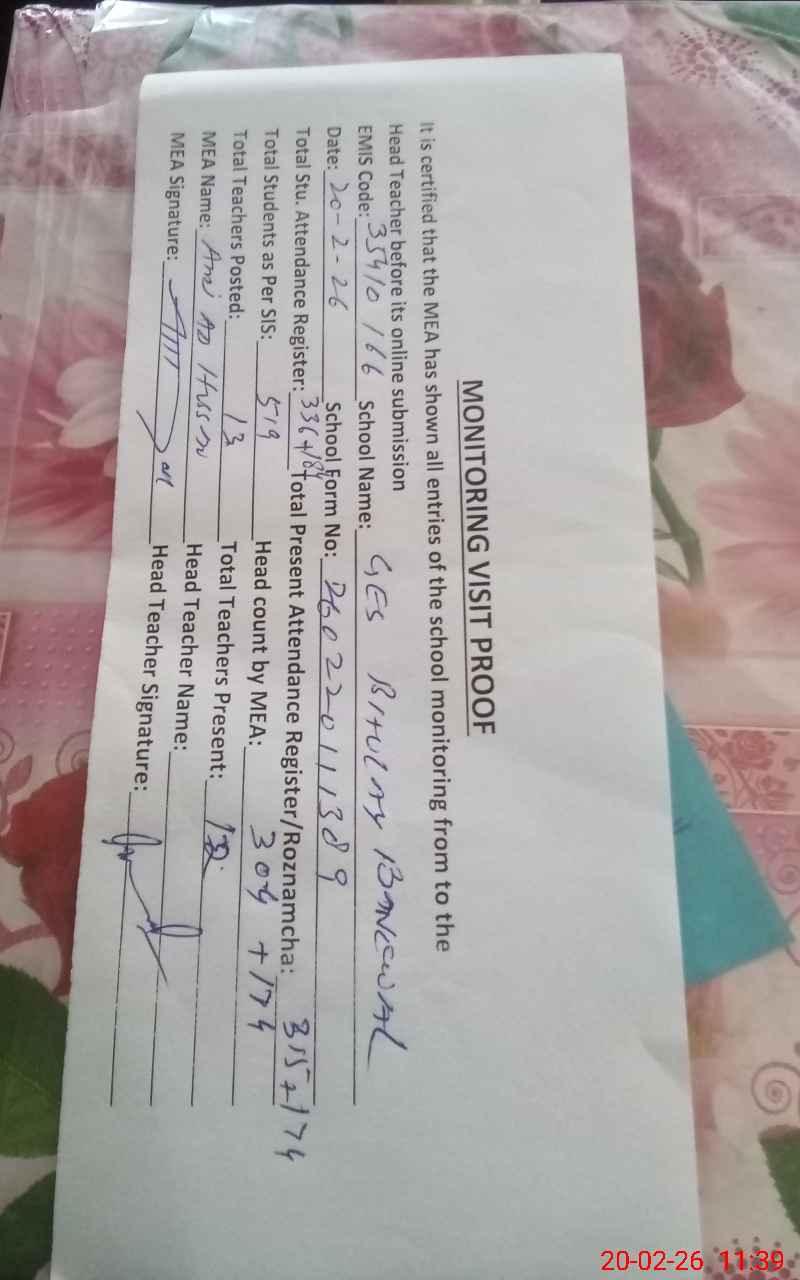 MONITORING VISIT PROOF
It is certified that the MEA has shown all entries of the school monitoring from to the
Head Teacher before its online submission
EMIS Code: 35410166 School Name: GES
Date: 20-2-26 School Form No: 26022011389
Total Stu. Attendance Register: 336+184 Total Present Attendance Register/Roznamcha: 315+174
Total Students as Per SIS: 519 Head count by MEA: 304+174
Total Teachers Posted: 13 Total Teachers Present:
MEA Name: Head Teacher Name:
MEA Signature: Head Teacher Signature:
20-02-26 11:39